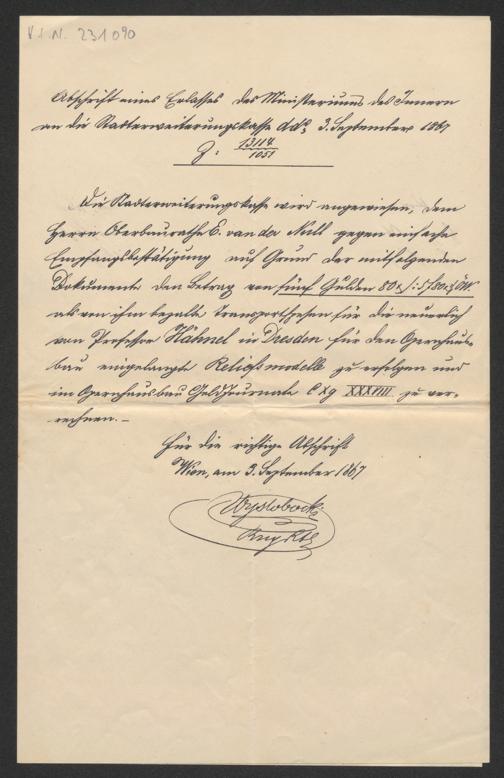 V.I.N. 231090
Abschrift eines Erlasses des Ministeriums des Innern
an die Stadterweiterungskasse ddo 3. September 1867
Z: 13114/1051
Die Stadterweiterungskasse wird angewiesen, dem
Herrn Oberbaurathe E. van der Null gegen einfache
Empfangsbestätigung auf Grund der mitfolgenden
Dokumente den Betrag von fünf Gulden 80 x /: 5 f 80 x ÖW
als von ihm bezalte Transportspesen für die neuerlich
von Professor Hähnel in Dresden für den Opernhaus-
bau eingelangte Reliefsmodelle zu erfolgen und
im Opernhausbau Geldjournale XXXVIII zu ver-
rechnen.–
Für die richtige Abschrift
Wien, am 3. September 1867